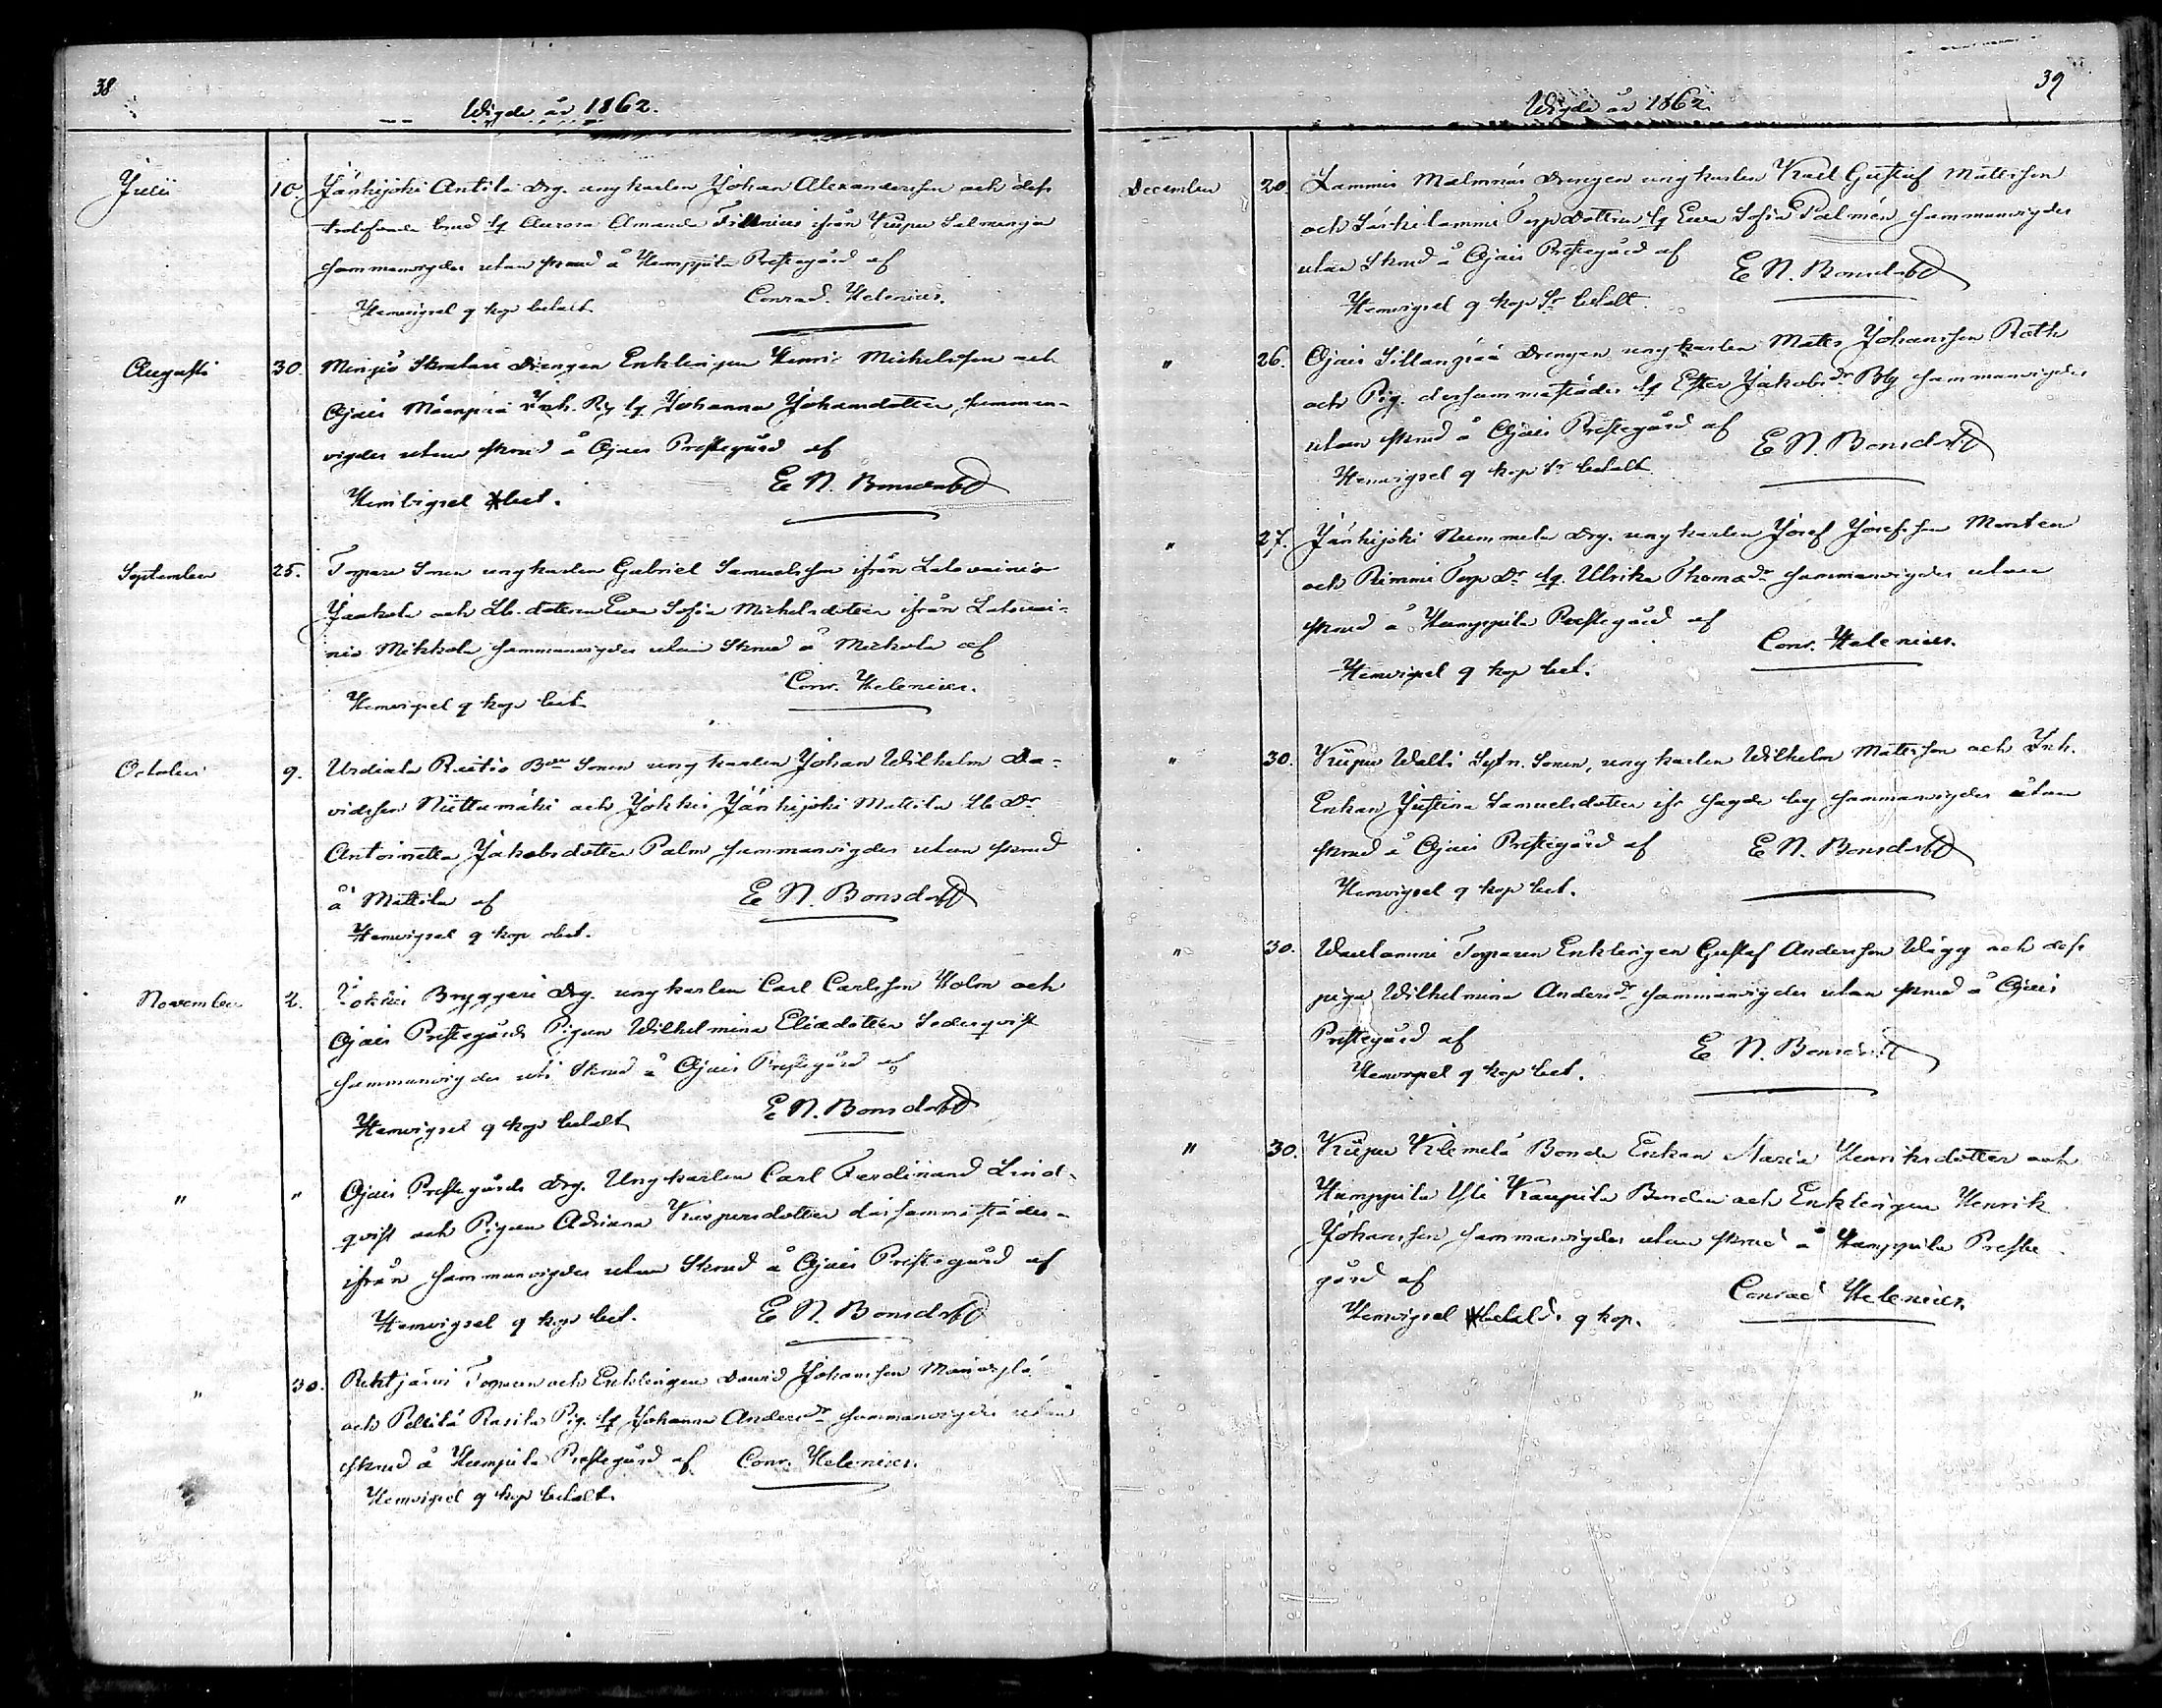 38
Wigde år 1862.
Julii 10. Jänhijoki Antila drg. ungkarlen Johan Alexandersson och dess
trolofvade brud Aurora Amanda ifrån Kiipu
sammanvigdes utan skrud å Humppila Prestegård af
Hemvigsel 9 kop betalt Conrad. Helenius.
Augusti 30. Drengen Enklingen Henric Michelsson och
Ojais Inh. Pig. Johanna Johansdotter samman-
vigdes utan skrud å Ojais Prestegård af
Hemvigsel bet. E N. Bonsdorff
September 25. Torpare Sonen ungkarlen Gabriel Samuelsson ifrån Latovainio
Jaakola och Lb. dottern Eva Sofia Michelsdotter ifrån Latovai-
nio Mikkola sammanvigdes utan Skrud å Mickola af
Hemvigsel 9 kop bet. Conr. Helenius.
October 9. Urdiala Rustio Bde Sonen ungkarlen Johan Wilhelm Da-
vidsson Niittumäki och Jokkis Jänhijoki Mattila Lb Dr
Antoinetta Jakobsdotter Palm sammanvigdes utan skrud
å Mattila af E N. Bonsdorff
Hemvigsel 9 kop bet.
November 2. Jokkis Bryggeri drg. ungkarlen Carl Carlsson Holm och
Ojais Prestegårds Pigan Wilhelmina Eliædotter Söderqvist
sammanvigdes uti Skrud å Ojais Prestegård af
Hemvigsel 9 kop betalt E N. Bonsdorff
" " Ojais Prestegårds drg. Ungkarlen Carl Ferdinand Lind-
qvist och Pigan Adriana Kaspersdotter därsammastädes
ifrån sammanvigdes utan Skrud å Ojais Prestegård af
Hemvigsel 9 kop bet. E N. Bonsdorff
" 30. Rehtjärvi Torparen och Enklingen David Johansson
och Pellilä Rasila Pig. Johanna Andersdr sammanvigdes utan
skrud å Humpila Prestegård af Conr. Helenius.
Hemvigsel 9 kop betalt.
39
Wigde år 1862.
December 20. Lammis Malmnäs Drengen ungkarlen Karl Gustaf Mattsson
och Särkilammi Torpdottern Eva Sofia Palmén sammanvigdes
utan Skrud å Ojais Prestegård af E N. Bonsdorff
Hemvigsel 9 kop Sr betalt.
" 26. Ojais Sillanpää Drengen ungkarlen Matts Johansson Rath
och Pig. dersammastädes Ester Jakobsdr Bly sammanvigdes
utan skrud å Ojais Prestegård af E N. Bonsdorff
Hemvigsel 9 kop Sr betalt
" 27. Jänhijoki Nummela drg. ungkarlen Josef Josefsson Morten
och Rimmi Torp Dr Ulrika Thomædr sammanvigdes utan
skrud å Humppila Prestegård af Conr. Helenius.
Hemvigsel 9 kop bet.
" 30. Kiipu Walli Sytn. Sonen, ungkarlen Wilhelm Mattsson och Inh.
Enkan Justina Samuelsdotter ifr sagde by sammanvigdes utan
skrud å Ojais Prestegård af E N. Bonsdorff
Hemvigsel 9 kop bet.
" 30. Waulammi Torparen Enklingen Gustaf Andersson Wägg och dess
piga Wilhelmina Andersdr sammanvigdes utan skrud å Ojais
Prestegård af E N. Bonsdorff
Hemvigsel 9 kop bet.
" 30. Kiipu Klemelä Bonde Enkan Maria Henriksdotter och
Humppila Yli Kauppila Bonden och Enklingen Henrik
Johansson sammanvigdes utan skrud å Humppila Preste
gård af Conrad Helenius.
Hemvigsel betald. 9 kop.